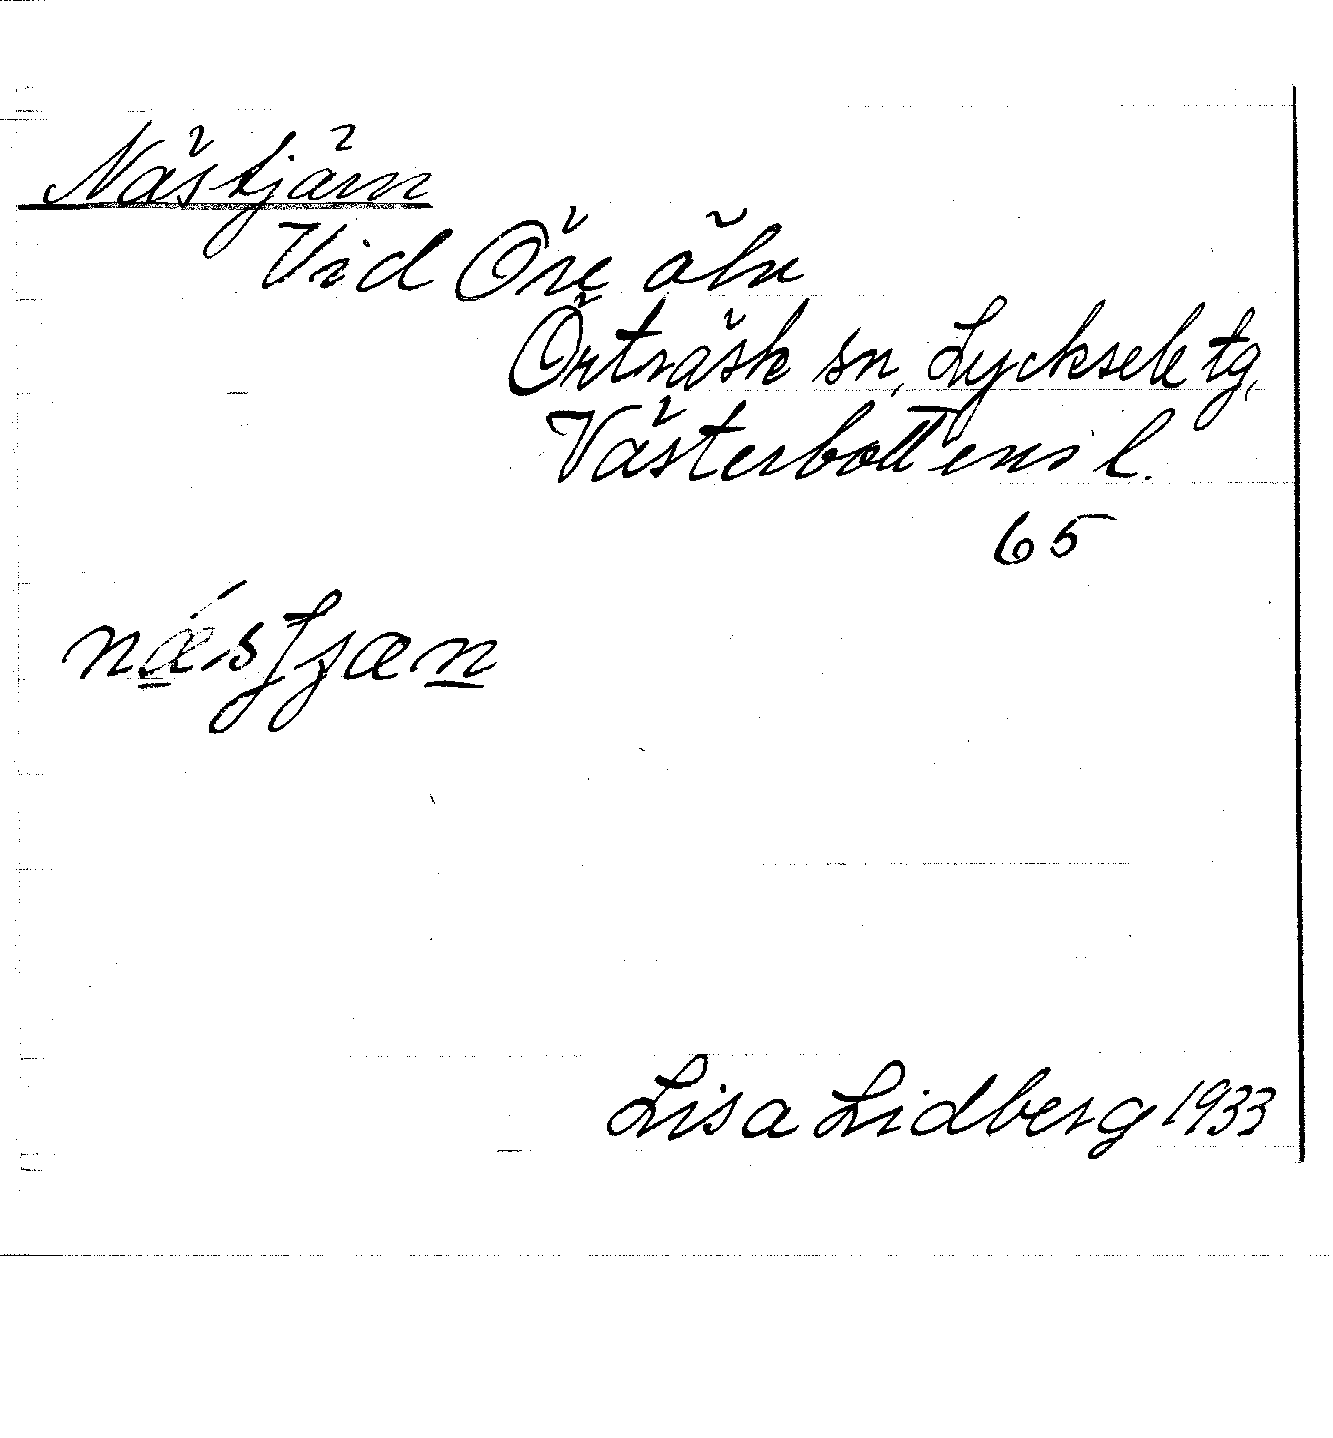 Nästjärn
Vid Öre älv
Örträsk sn, Lycksele tg,
Västerbottens l.
65
Lisa Lidberg 1933